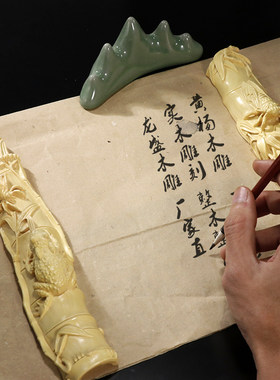 黄杨木雕
实木雕刻 整木
龙盛木雕 厂家直